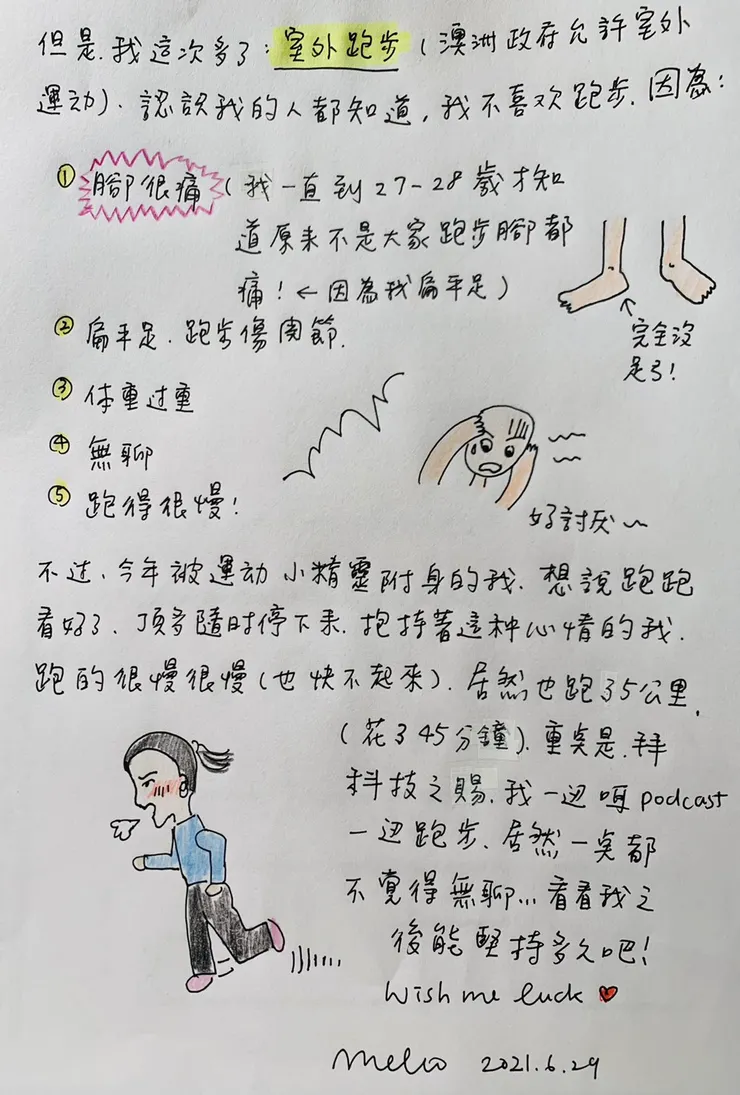 但是,我這次多了:室外跑步(澳洲政府允許室外
運动). 認識我的人都知道,我不喜欢跑步.因為:
① 腳很痛(我一直到27-28歲才知
道原来不是大家跑步腳都
痛!←因為我扁平足)
完全沒
足弓!
② 扁平足.跑步傷関節.
③ 体重过重
④ 無聊
⑤ 跑得很慢!
好討厌~
不过、今年被運动小精靈附身的我.想說跑跑
看好了、頂多隨时停下来.抱持著這种心情的我.
跑的很慢很慢(也快不起來).居然也跑了5公里.
(花了45分鐘).重点是.拜
科技之賜.我一边听podcast
一边跑步、居然一点都
不覺得無聊...看看我之
後能堅持多久吧!
Wish me luck ♥
2021.6.29